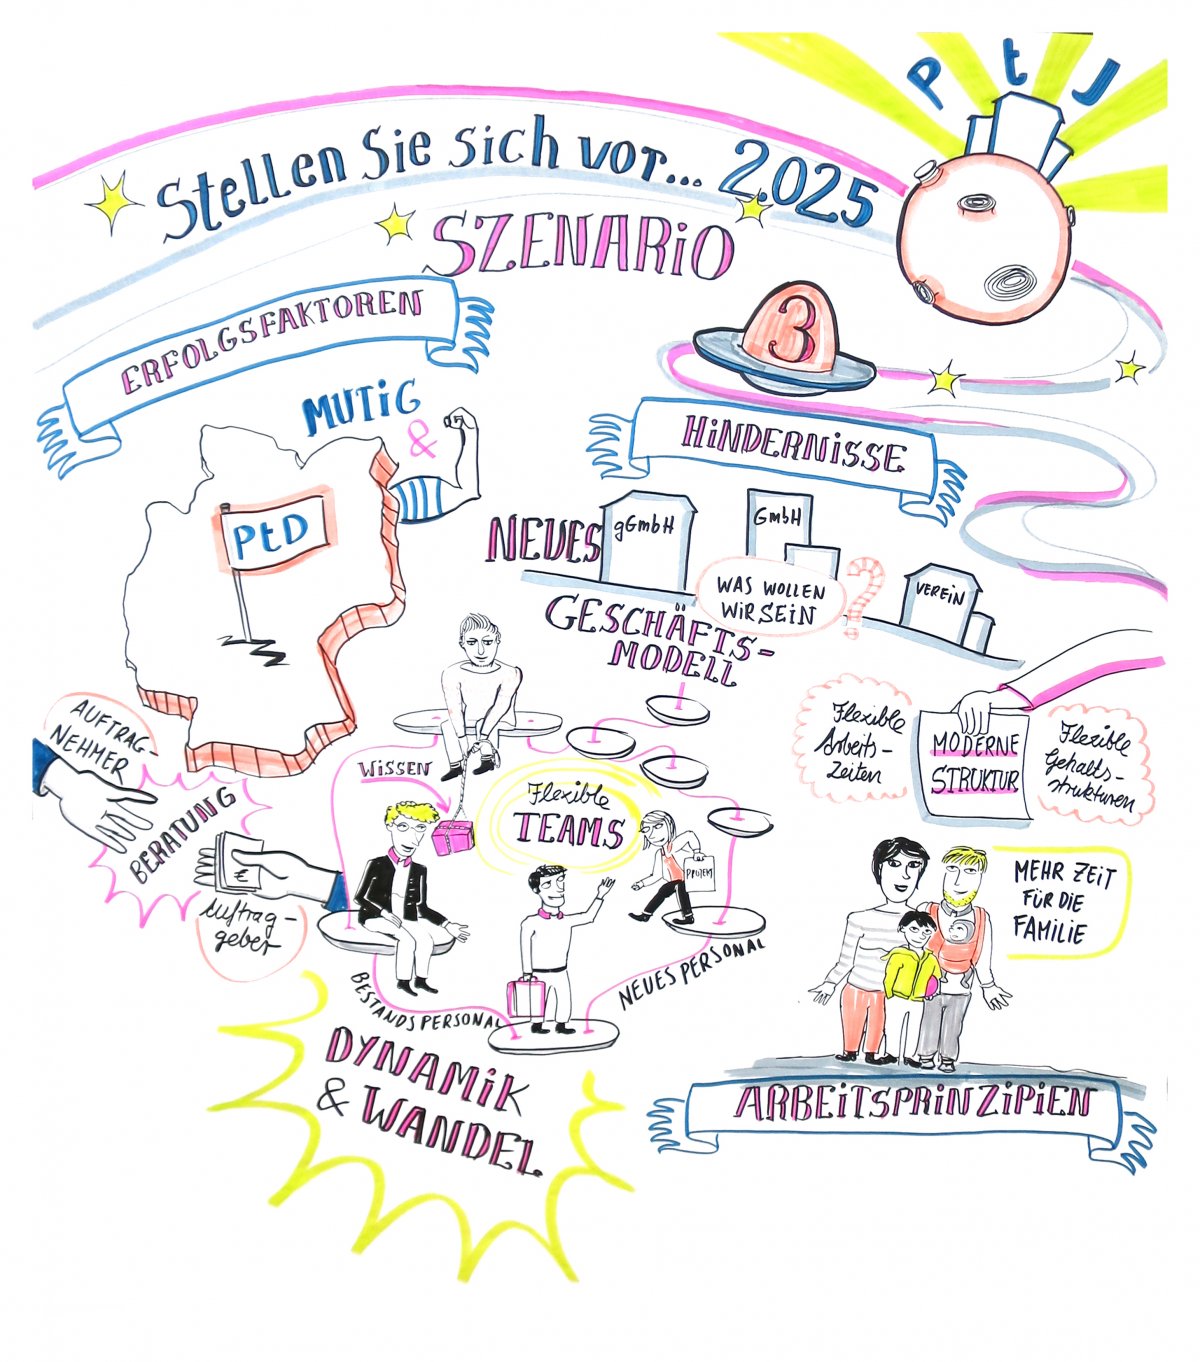 PtJ
Stellen Sie sich vor... 2.025
SZENARiO
3
ERFOLGSFAKTOREN
MUTiG
&
PtD
HiNDERNiSSE
gGmbH
GmbH
VEREiN
WAS WOLLEN
WiR SEiN
?
NEUES
GESCHÄFTS-
MODELL
AUFTRAG-
NEHMER
BERATUNG
€
Auftrag-
geber
WiSSEN
Flexible
TEAMS
PROJEKT
BESTANDSPERSONAL
NEUES PERSONAL
DYNAMiK
& WANDEL
Flexible
Arbeits-
zeiten
MODERNE
STRUKTUR
Flexible
Gehalts-
strukturen
MEHR ZEiT
FÜR DiE
FAMiLiE
ARBEiTSPRiNZiPiEN